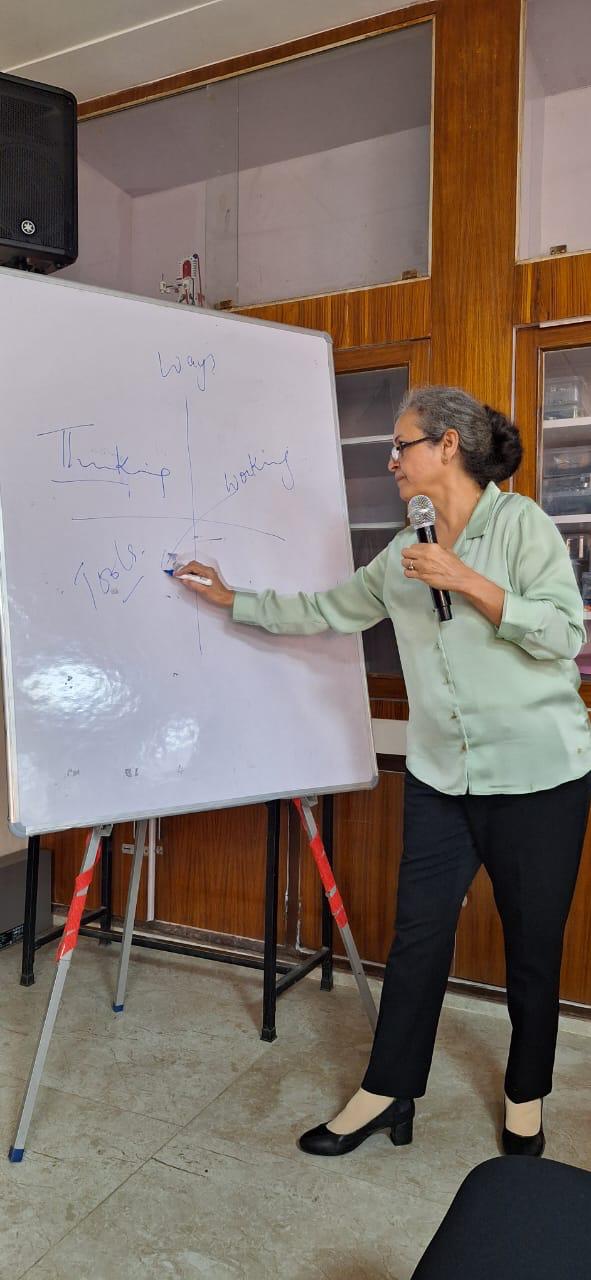 Ways
Thinking
Working
Tools.